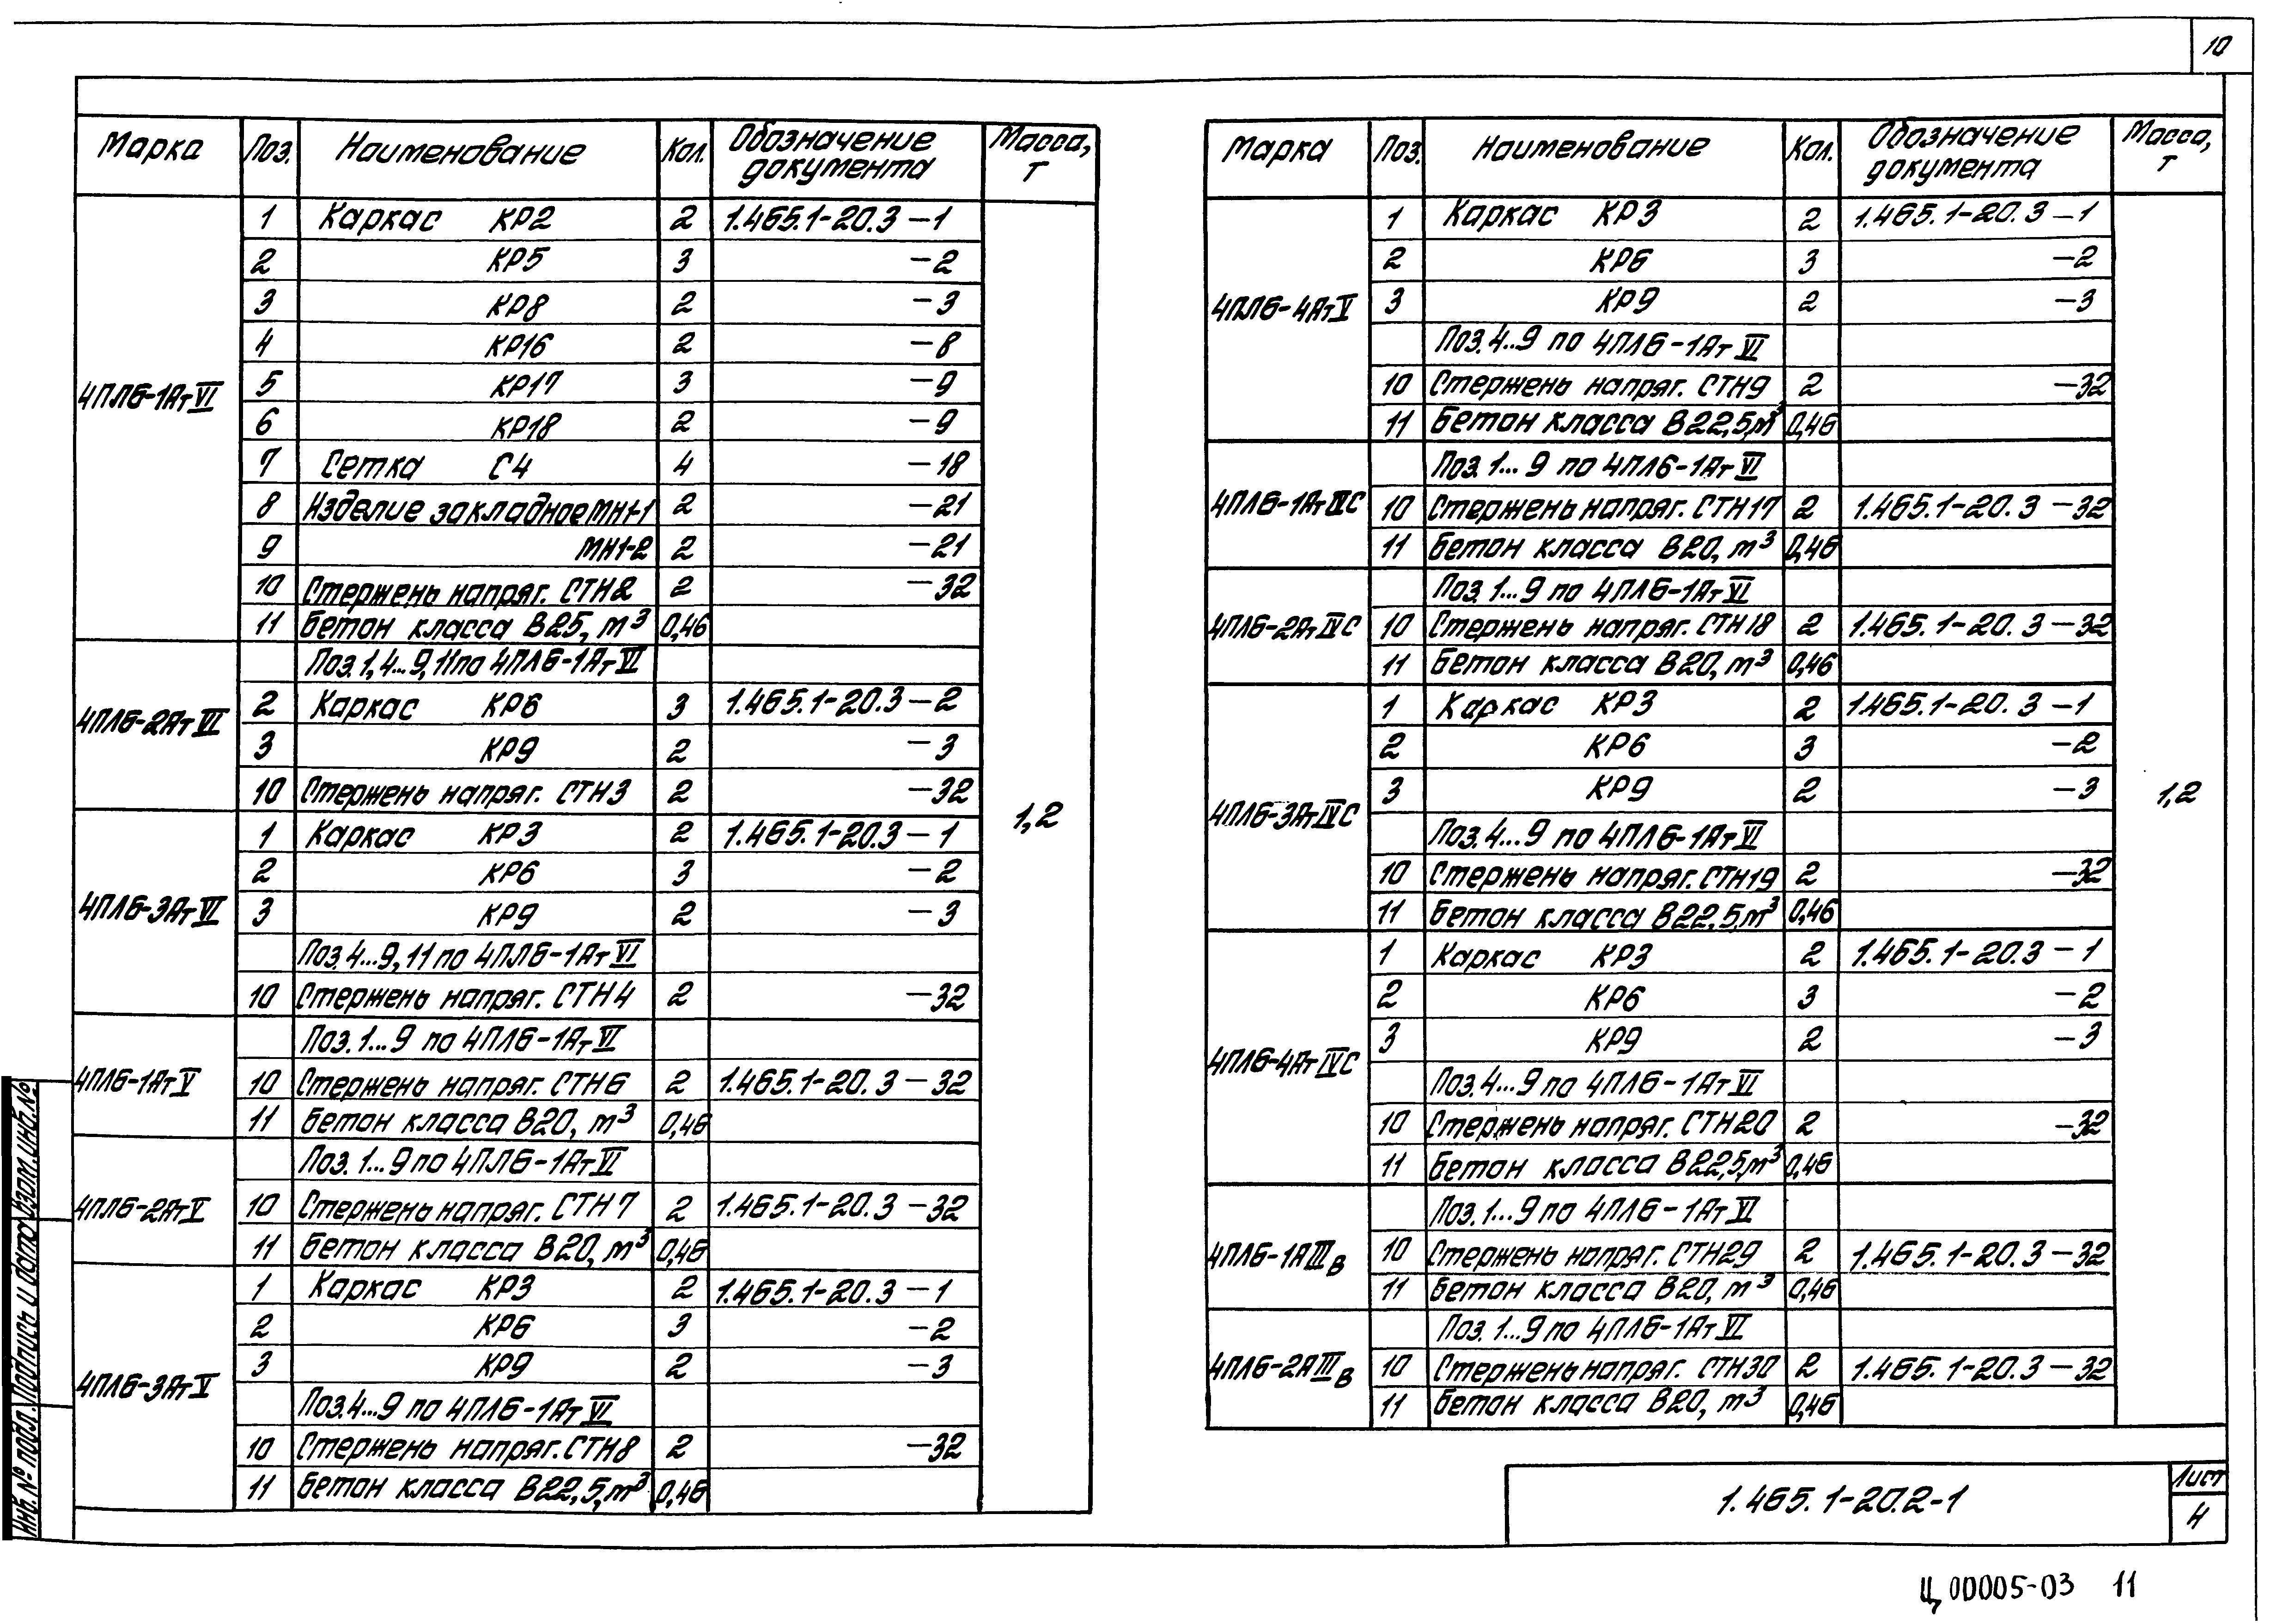 10
Марка Поз. Наименование Кол. Обозначение документа Масса, т
4ПЛ6-1АтVI
1 Каркас КР2 2 1.465.1-20.3-1
2 КР5 3 -2
3 КР8 2 -3
4 КР16 2 -8
5 КР17 3 -9
6 КР18 2 -9
7 Сетка С4 4 -18
8 Изделие закладное МН1-1 2 -21
9 МН1-2 2 -21
10 Стержень напряг. СТН2 2 -32
11 Бетон класса В25, м³ 0,46
4ПЛ6-2АтVI
Поз. 1, 4...9, 11 по 4ПЛ6-1АтVI
2 Каркас КР6 3 1.465.1-20.3-2
3 КР9 2 -3
10 Стержень напряг. СТН3 2 -32
1,2
4ПЛ6-3АтVI
1 Каркас КР3 2 1.465.1-20.3-1
2 КР6 3 -2
3 КР9 2 -3
Поз. 4...9, 11 по 4ПЛ6-1АтVI
10 Стержень напряг. СТН4 2 -32
4ПЛ6-1АтV
Поз. 1...9 по 4ПЛ6-1АтVI
10 Стержень напряг. СТН6 2 1.465.1-20.3-32
11 Бетон класса В20, м³ 0,46
4ПЛ6-2АтV
Поз. 1...9 по 4ПЛ6-1АтVI
10 Стержень напряг. СТН7 2 1.465.1-20.3-32
11 Бетон класса В20, м³ 0,46
4ПЛ6-3АтV
1 Каркас КР3 2 1.465.1-20.3-1
2 КР6 3 -2
3 КР9 2 -3
Поз. 4...9 по 4ПЛ6-1АтVI
10 Стержень напряг. СТН8 2 -32
11 Бетон класса В22,5, м³ 0,46
Марка Поз. Наименование Кол. Обозначение документа Масса, т
4ПЛ6-4АтV
1 Каркас КР3 2 1.465.1-20.3-1
2 КР6 3 -2
3 КР9 2 -3
Поз. 4...9 по 4ПЛ6-1АтVI
10 Стержень напряг. СТН9 2 -32
11 Бетон класса В22,5, м³ 0,46
4ПЛ6-1АтIVС
Поз. 1...9 по 4ПЛ6-1АтVI
10 Стержень напряг. СТН17 2 1.465.1-20.3-32
11 Бетон класса В20, м³ 0,46
4ПЛ6-2АтIVС
Поз. 1...9 по 4ПЛ6-1АтVI
10 Стержень напряг. СТН18 2 1.465.1-20.3-32
11 Бетон класса В20, м³ 0,46
4ПЛ6-3АтIVС
1 Каркас КР3 2 1.465.1-20.3-1
2 КР6 3 -2
3 КР9 2 -3
1,2
Поз. 4...9 по 4ПЛ6-1АтVI
10 Стержень напряг. СТН19 2 -32
11 Бетон класса В22,5, м³ 0,46
4ПЛ6-4АтIVС
1 Каркас КР3 2 1.465.1-20.3-1
2 КР6 3 -2
3 КР9 2 -3
Поз. 4...9 по 4ПЛ6-1АтVI
10 Стержень напряг. СТН20 2 -32
11 Бетон класса В22,5, м³ 0,46
4ПЛ6-1АIIIв
Поз. 1...9 по 4ПЛ6-1АтVI
10 Стержень напряг. СТН29 2 1.465.1-20.3-32
11 Бетон класса В20, м³ 0,46
4ПЛ6-2АIIIв
Поз. 1...9 по 4ПЛ6-1АтVI
10 Стержень напряг. СТН30 2 1.465.1-20.3-32
11 Бетон класса В20, м³ 0,46
Инв. № подл. Подпись и дата Взам. инв. №
1.465.1-20.2-1
Лист
4
Ц00005-03 11